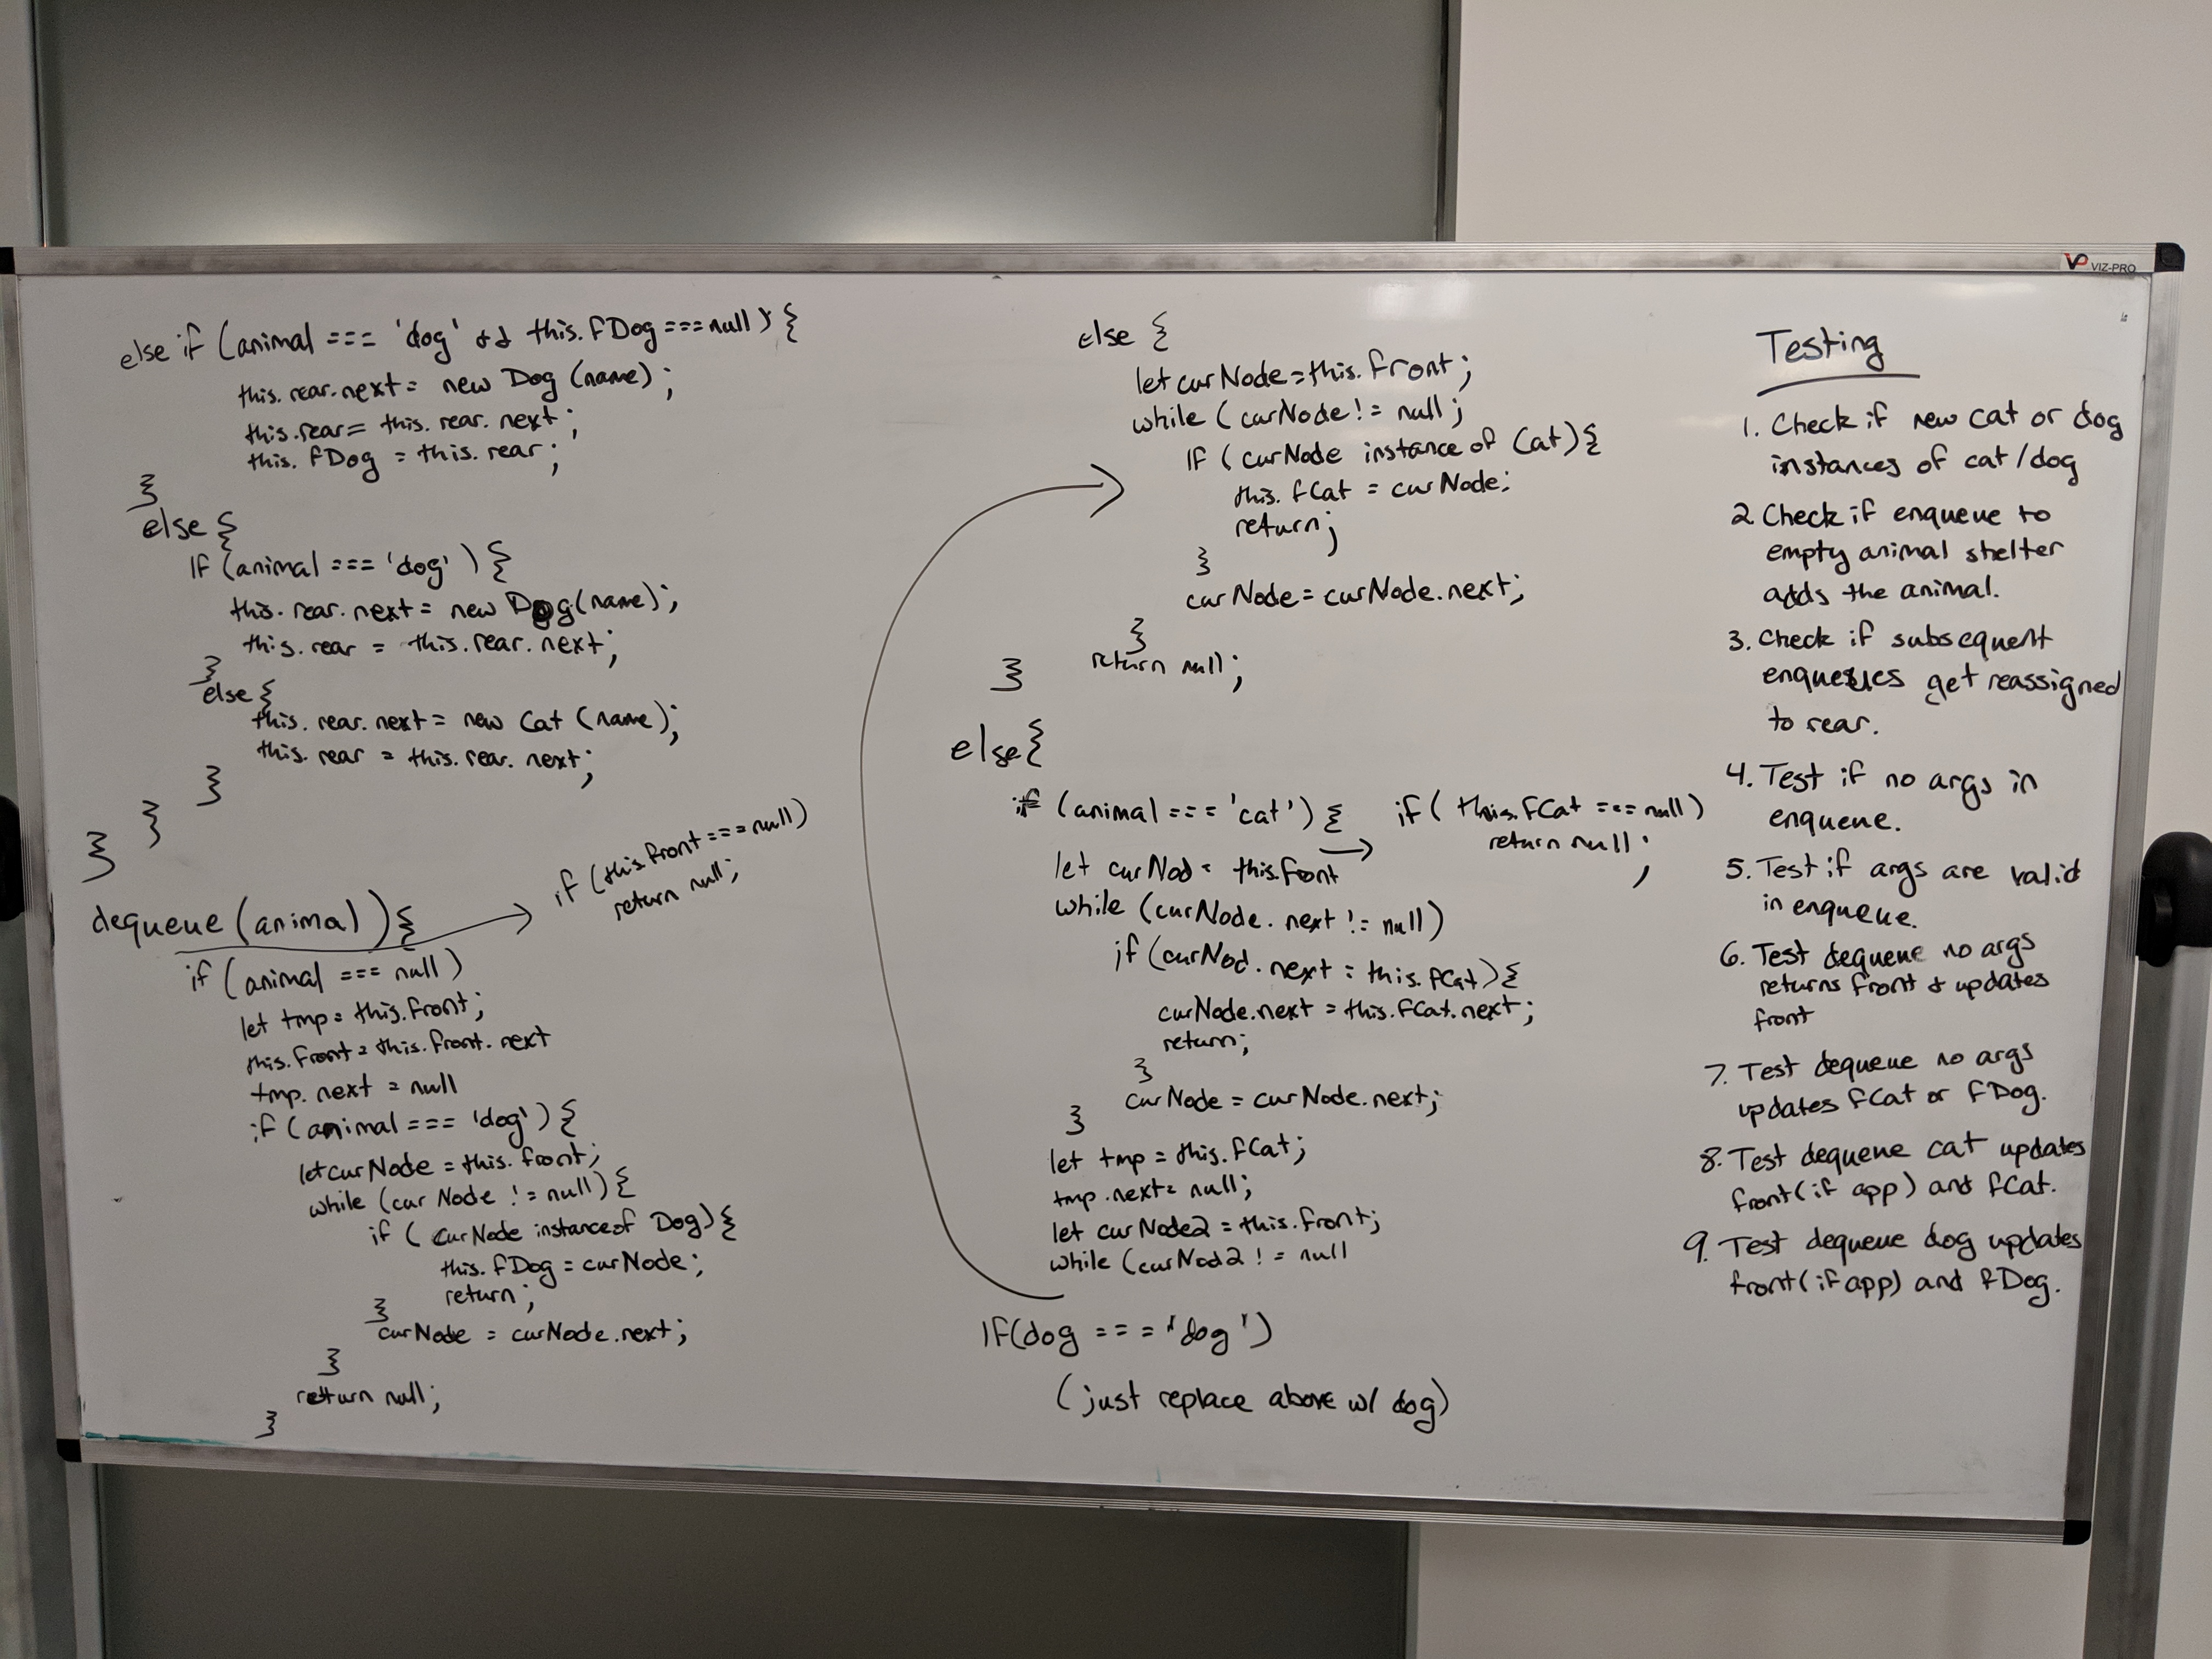 VP VIZ-PRO
else if (animal === 'dog' && this.fDog === null) {
this.rear.next = new Dog (name);
this.rear = this.rear.next;
this.fDog = this.rear;
}
else {
If (animal === 'dog') {
this.rear.next = new Dog(name);
this.rear = this.rear.next;
}
else {
this.rear.next = new Cat (name);
this.rear = this.rear.next;
}
}
}
dequeue (animal) {
if (this.front === null)
return null;
if (animal === null)
let tmp = this.front;
this.front = this.front.next
tmp.next = null
if (animal === 'dog') {
let curNode = this.front;
while (curNode != null) {
if (curNode instanceof Dog) {
this.fDog = curNode;
return;
}
curNode = curNode.next;
}
return null;
}
else {
let curNode = this.front;
while (curNode != null;
If (curNode instance of Cat) {
this.fCat = curNode;
return;
}
curNode = curNode.next;
}
return null;
}
else {
if (animal === 'cat') {
if (this.fCat === null)
return null;
let curNod = this.front
while (curNode.next != null)
if (curNod.next = this.fCat) {
curNode.next = this.fCat.next;
return;
}
curNode = curNode.next;
}
let tmp = this.fCat;
tmp.next = null;
let curNode2 = this.front;
while (curNod2 != null
If (dog === 'dog')
(just replace above w/ dog)
Testing
1. Check if new cat or dog
instances of cat/dog
2. Check if enqueue to
empty animal shelter
adds the animal.
3. Check if subsequent
enqueues get reassigned
to rear.
4. Test if no args in
enqueue.
5. Test if args are valid
in enqueue.
6. Test dequeue no args
returns front & updates
front
7. Test dequeue no args
updates fCat or fDog.
8. Test dequeue cat updates
front (if app) and fCat.
9. Test dequeue dog updates
front (if app) and fDog.